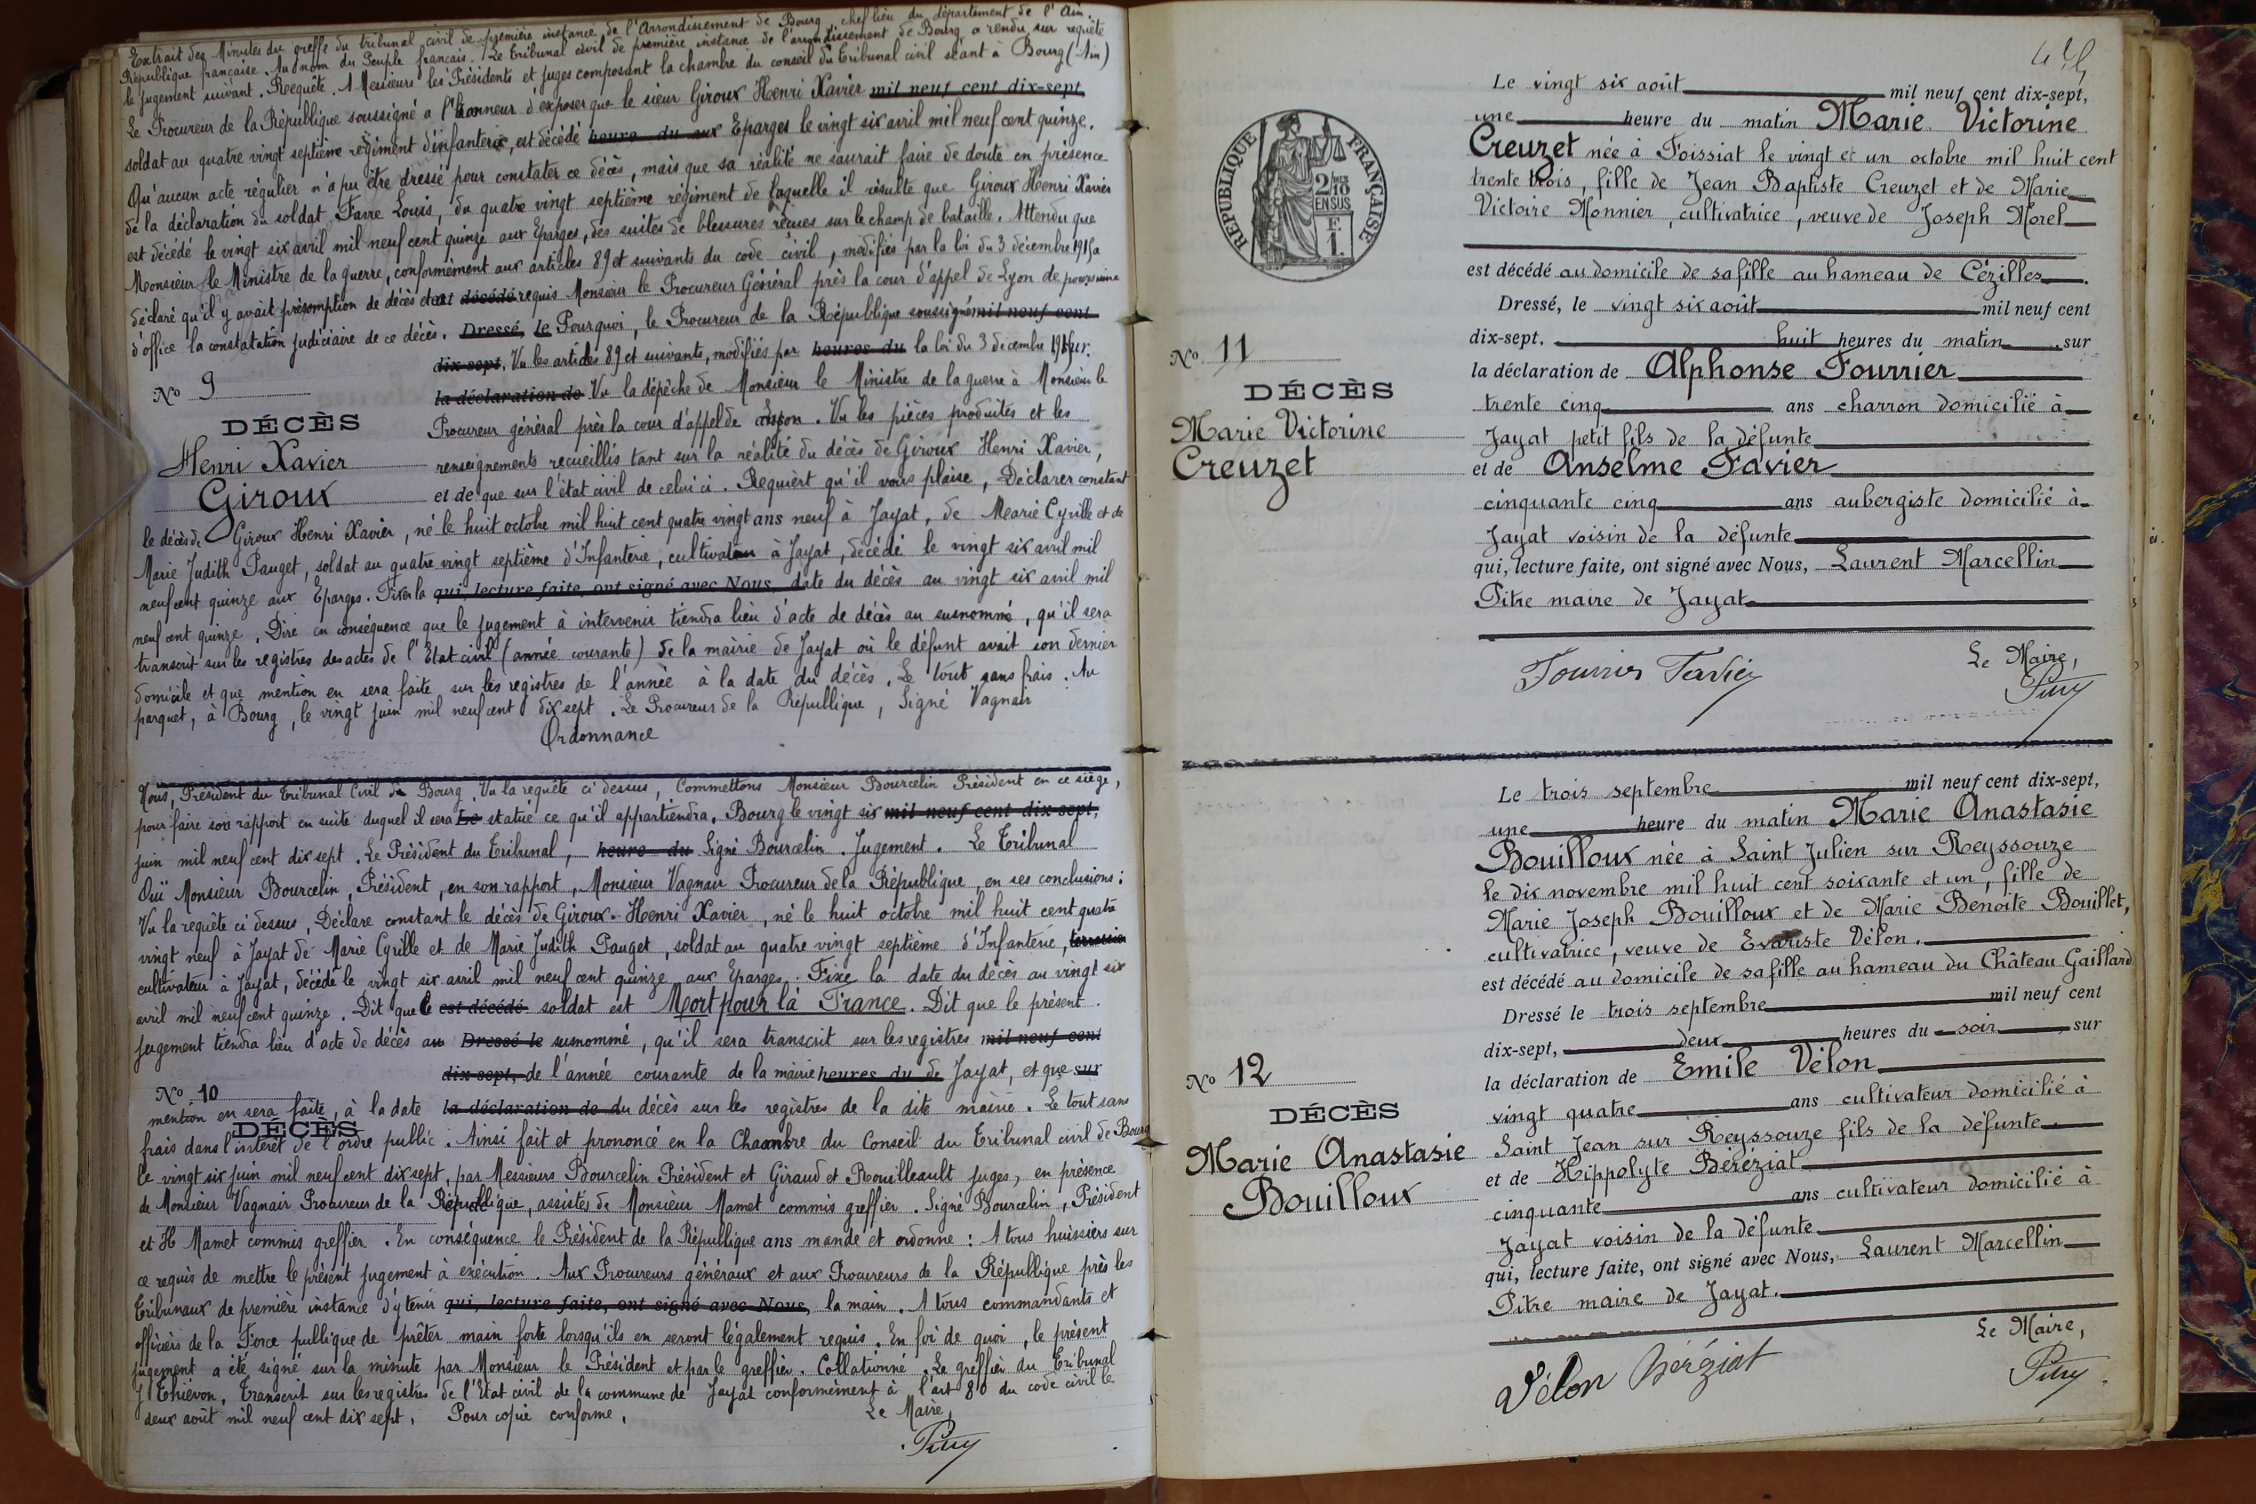 Extrait des Minutes du greffe du tribunal civil de première instance de l'Arrondissement de Bourg, chef lieu du département de l'Ain.
République française. Au nom du Peuple français. Le Tribunal civil de première instance de l'arrondissement de Bourg a rendu sur requête
le jugement suivant. Reequête. A Messieurs les Présidents et Juges composant la chambre du conseil du Tribunal civil séant à Bourg (Ain)
Le Procureur de la République soussigné a l'honneur d'exposer que le sieur Giroux Henri Xavier mil neuf cent dix-sept,
soldat au quatre vingt septième régiment d'infanterie, est décédé heure du aux Eparges le vingt six avril mil neuf cent quinze.
Qu'aucun acte régulier n'a pu être dressé pour constater ce décès, mais que sa réalité ne saurait faire de doute en présence
de la déclaration du soldat Favre Louis, du quatre vingt septième régiment de laquelle il résulte que Giroux Henri Xavier
est décédé le vingt six avril mil neuf cent quinze aux Eparges, des suites de blessures reçues sur le champ de bataille. Attendu que
Monsieur le Ministre de la guerre, conformément aux articles 89 et suivants du code civil, modifiés par la loi du 3 décembre 1915 a
déclaré qu'il y avait présomption de décès et est décédé requis Monsieur le Procureur Général près la cour d'appel de Lyon de poursuivre
d'office la constatation judiciaire de ce décès. Dressé, le Pourquoi, le Procureur de la République soussigné mil neuf cent
dix-sept. Vu les articles 89 et suivants, modifiés par heures du la loi du 3 décembre 1915 sur.
No 9
la déclaration de Vu la dépêche de Monsieur le Ministre de la guerre à Monsieur le
DÉCÈS
Procureur général près la cour d'appel de Lyon. Vu les pièces produites et les
Henri Xavier
renseignements recueillis tant sur la réalité du décès de Giroux Henri Xavier,
Giroux
et de que sur l'état civil de celui ci. Requièrt qu'il vous plaise, Déclarer constant
le décès de Giroux Henri Xavier, né le huit octobre mil huit cent quatre vingt ans neuf à Jayat, de Marie Cyrille et de
Marie Judith Pauget, soldat au quatre vingt septième d'Infanterie, cultivateur à Jayat, décédé le vingt six avril mil
neuf cent quinze aux Eparges. Fixer la qui, lecture faite, ont signé avec Nous, date du décès au vingt six avril mil
neuf cent quinze. Dire en conséquence que le jugement à intervenir tiendra lieu d'acte de décès au susnommé, qu'il sera
transcrit sur les registres des actes de l'Etat civil (année courante) de la mairie de Jayat où le défunt avait son dernier
domicile et que mention en sera faite sur les registres de l'année à la date du décès. Le tout sans frais. Au
parquet, à Bourg, le vingt juin mil neuf cent dix sept. Le Procureur de la République, Signé Vagnair
Ordonnance
Nous, Président du Tribunal Civil de Bourg. Vu la requête ci dessus, Commettons Monsieur Bourcelin Président en ce siège,
pour faire son rapport en suite duquel il sera Le statué ce qu'il appartiendra. Bourg le vingt six mil neuf cent dix-sept,
juin mil neuf cent dix sept. Le Président du Tribunal, heure du Signé Bourcelin. Jugement. Le Tribunal
Ouï Monsieur Bourcelin, Président, en son rapport, Monsieur Vagnair Procureur de la République, en ses conclusions:
Vu la requête ci dessus, Déclare constant le décès de Giroux Henri Xavier, né le huit octobre mil huit cent quatre
vingt neuf à Jayat de Marie Cyrille et de Marie Judith Pauget, soldat au quatre vingt septième d'Infanterie,
cultivateur à Jayat, décédé le vingt six avril mil neuf cent quinze aux Eparges. Fixe la date du décès au vingt six
avril mil neuf cent quinze. Dit que le est décédé soldat est Mort pour la France. Dit que le présent
jugement tiendra lieu d'acte de décès au Dressé le susnommé, qu'il sera transcrit sur les registres mil neuf cent
dix-sept, de l'année courante de la mairie heures du de Jayat, et que sur
No 10
mention en sera faite, à la date la déclaration de du décès sur les registres de la dite mairie. Le tout sans
DÉCÈS
frais dans l'intérêt de l'ordre public. Ainsi fait et prononcé en la Chambre du Conseil du Tribunal civil de Bourg
le vingt six juin mil neuf cent dix sept, par Messieurs Bourcelin Président et Giraud et Rouilleault Juges, en présence
de Monsieur Vagnair Procureur de la République, assistés de Monsieur Mamet commis greffier. Signé Bourcelin, Président
et H Mamet commis greffier. En conséquence le Président de la République ans mande et ordonne: A tous huissiers sur
ce requis de mettre le présent jugement à exécution. Aux Procureurs généraux et aux Procureurs de la République près les
Tribunaux de première instance d'y tenir qui, lecture faite, ont signé avec Nous, la main. A tous commandants et
officiers de la Force publique de prêter main forte lorsqu'ils en seront légalement requis. En foi de quoi, le présent
jugement a été signé sur la minute par Monsieur le Président et par le greffier. Collationné. Le greffier du Tribunal
J Thiévon. Transcrit sur les registres de l'Etat civil de la commune de Jayat conformément à l'art 80 du code civil le
deux août mil neuf cent dix sept. Pour copie conforme,
Le Maire,
Pitre
RÉPUBLIQUE FRANÇAISE
2/10
EN SUS
F.
1.
Le vingt six août mil neuf cent dix-sept,
une heure du matin Marie Victorine
Creuzet née à Foissiat le vingt et un octobre mil huit cent
trente trois, fille de Jean Baptiste Creuzet et de Marie
Victoire Monnier, cultivatrice, veuve de Joseph Morel
est décédé au domicile de sa fille au hameau de Cézilles.
Dressé, le vingt six août mil neuf cent
dix-sept. huit heures du matin sur
No 11
la déclaration de Alphonse Fourrier
DÉCÈS
trente cinq ans charron domicilié à
Marie Victorine
Jayat petit fils de la défunte
Creuzet
et de Anselme Favier
cinquante cinq ans aubergiste domicilié à
Jayat voisin de la défunte
qui, lecture faite, ont signé avec Nous, Laurent Marcellin
Pitre maire de Jayat
Le Maire,
Fourrier Favier
Pitre
Le trois septembre mil neuf cent dix-sept,
une heure du matin Marie Anastasie
Bouilloux née à Saint Julien sur Reyssouze
le dix novembre mil huit cent soixante et un, fille de
Marie Joseph Bouilloux et de Marie Benoite Bouillet,
cultivatrice, veuve de Evariste Vélon.
est décédé au domicile de sa fille au hameau du Château Gaillard
Dressé le trois septembre mil neuf cent
dix-sept, deux heures du soir, sur
No 12
la déclaration de Emile Vélon
DÉCÈS
vingt quatre ans cultivateur domicilié à
Marie Anastasie
Saint Jean sur Reyssouze fils de la défunte
Bouilloux
et de Hippolyte Béréziat
cinquante ans cultivateur domicilié à
Jayat voisin de la défunte
qui, lecture faite, ont signé avec Nous, Laurent Marcellin
Pitre maire de Jayat.
Le Maire,
Vélon Béréziat
Pitre